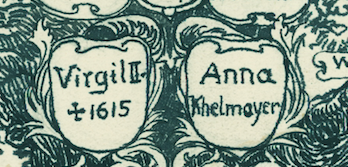 Virgil II.
✝1615
Anna
Khelmayer